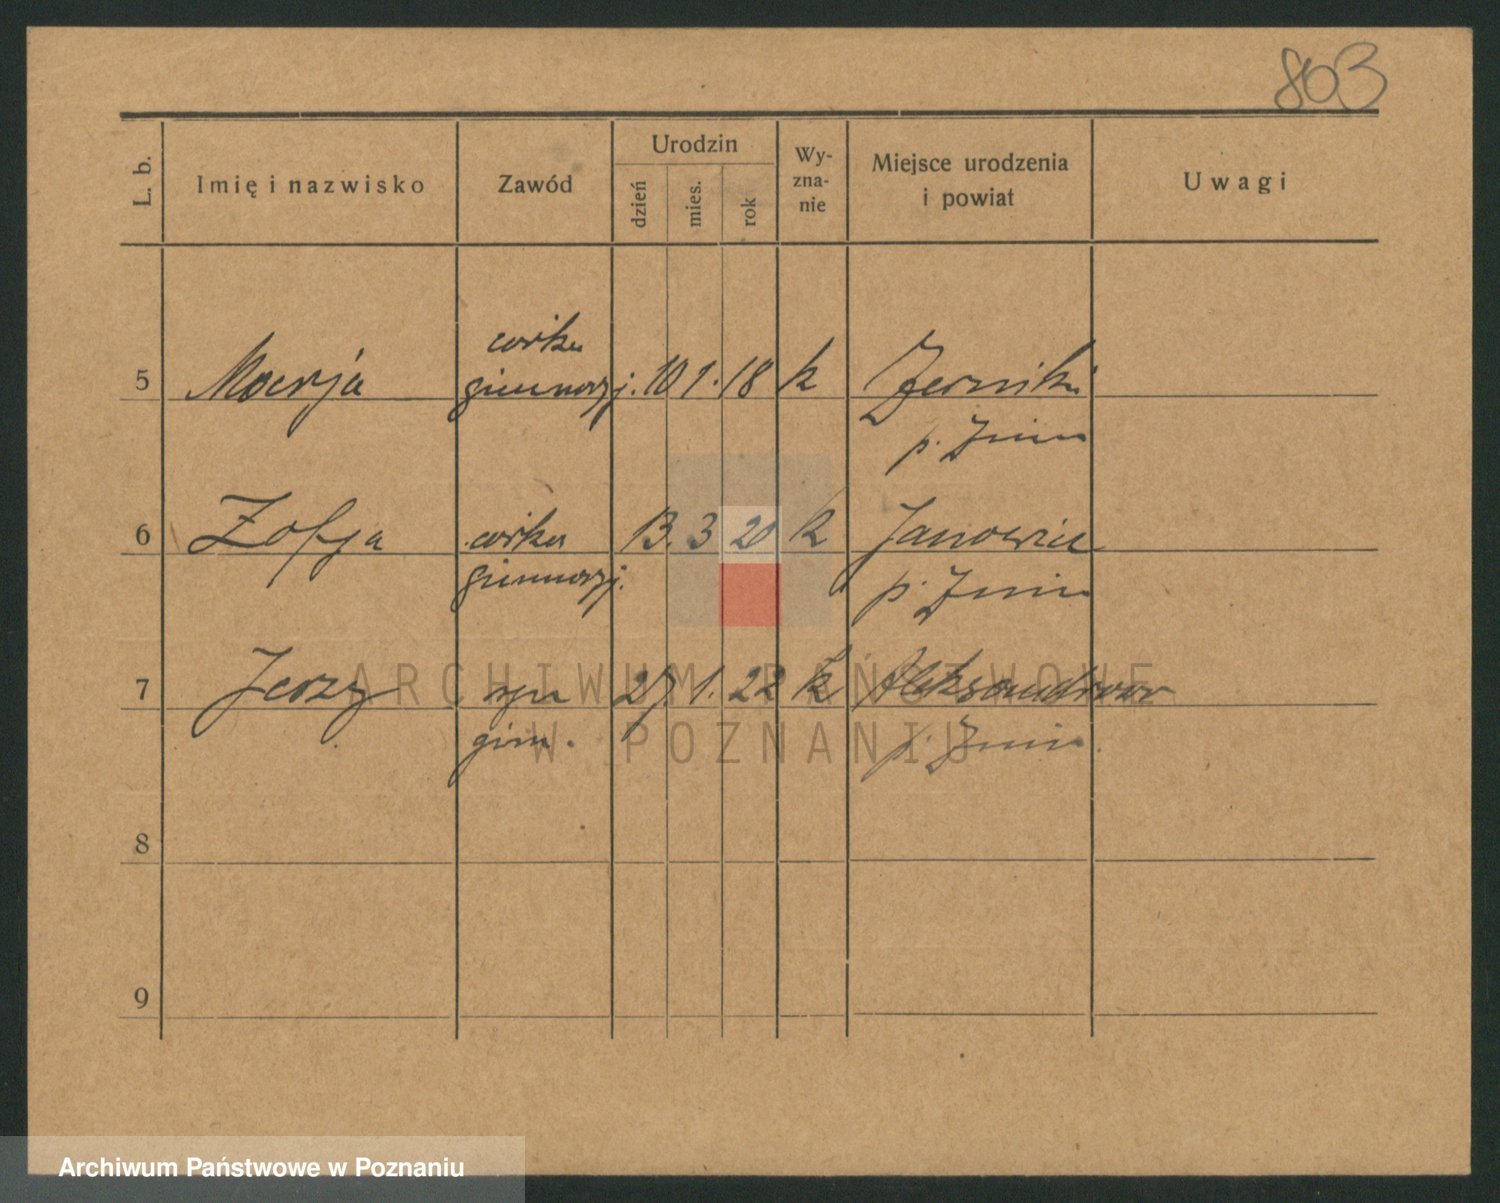 803
L. b.
Imię i nazwisko
Zawód
Urodzin
dzień
mies.
rok
Wy-
zna-
nie
Miejsce urodzenia
i powiat
Uwagi
córka
5 Marja gimnazj. 10 1. 18 k Żerniki
p. Żnin
6 Zofja córka 13. 3 20 k Janowiec
gimnazj. p. Żnin
7 Jerzy syn 27. 1. 22 k Aleksandrowo
gimn. p. Żnin.
8
9
ARCHIWUM PAŃSTWOWE
W POZNANIU
Archiwum Państwowe w Poznaniu